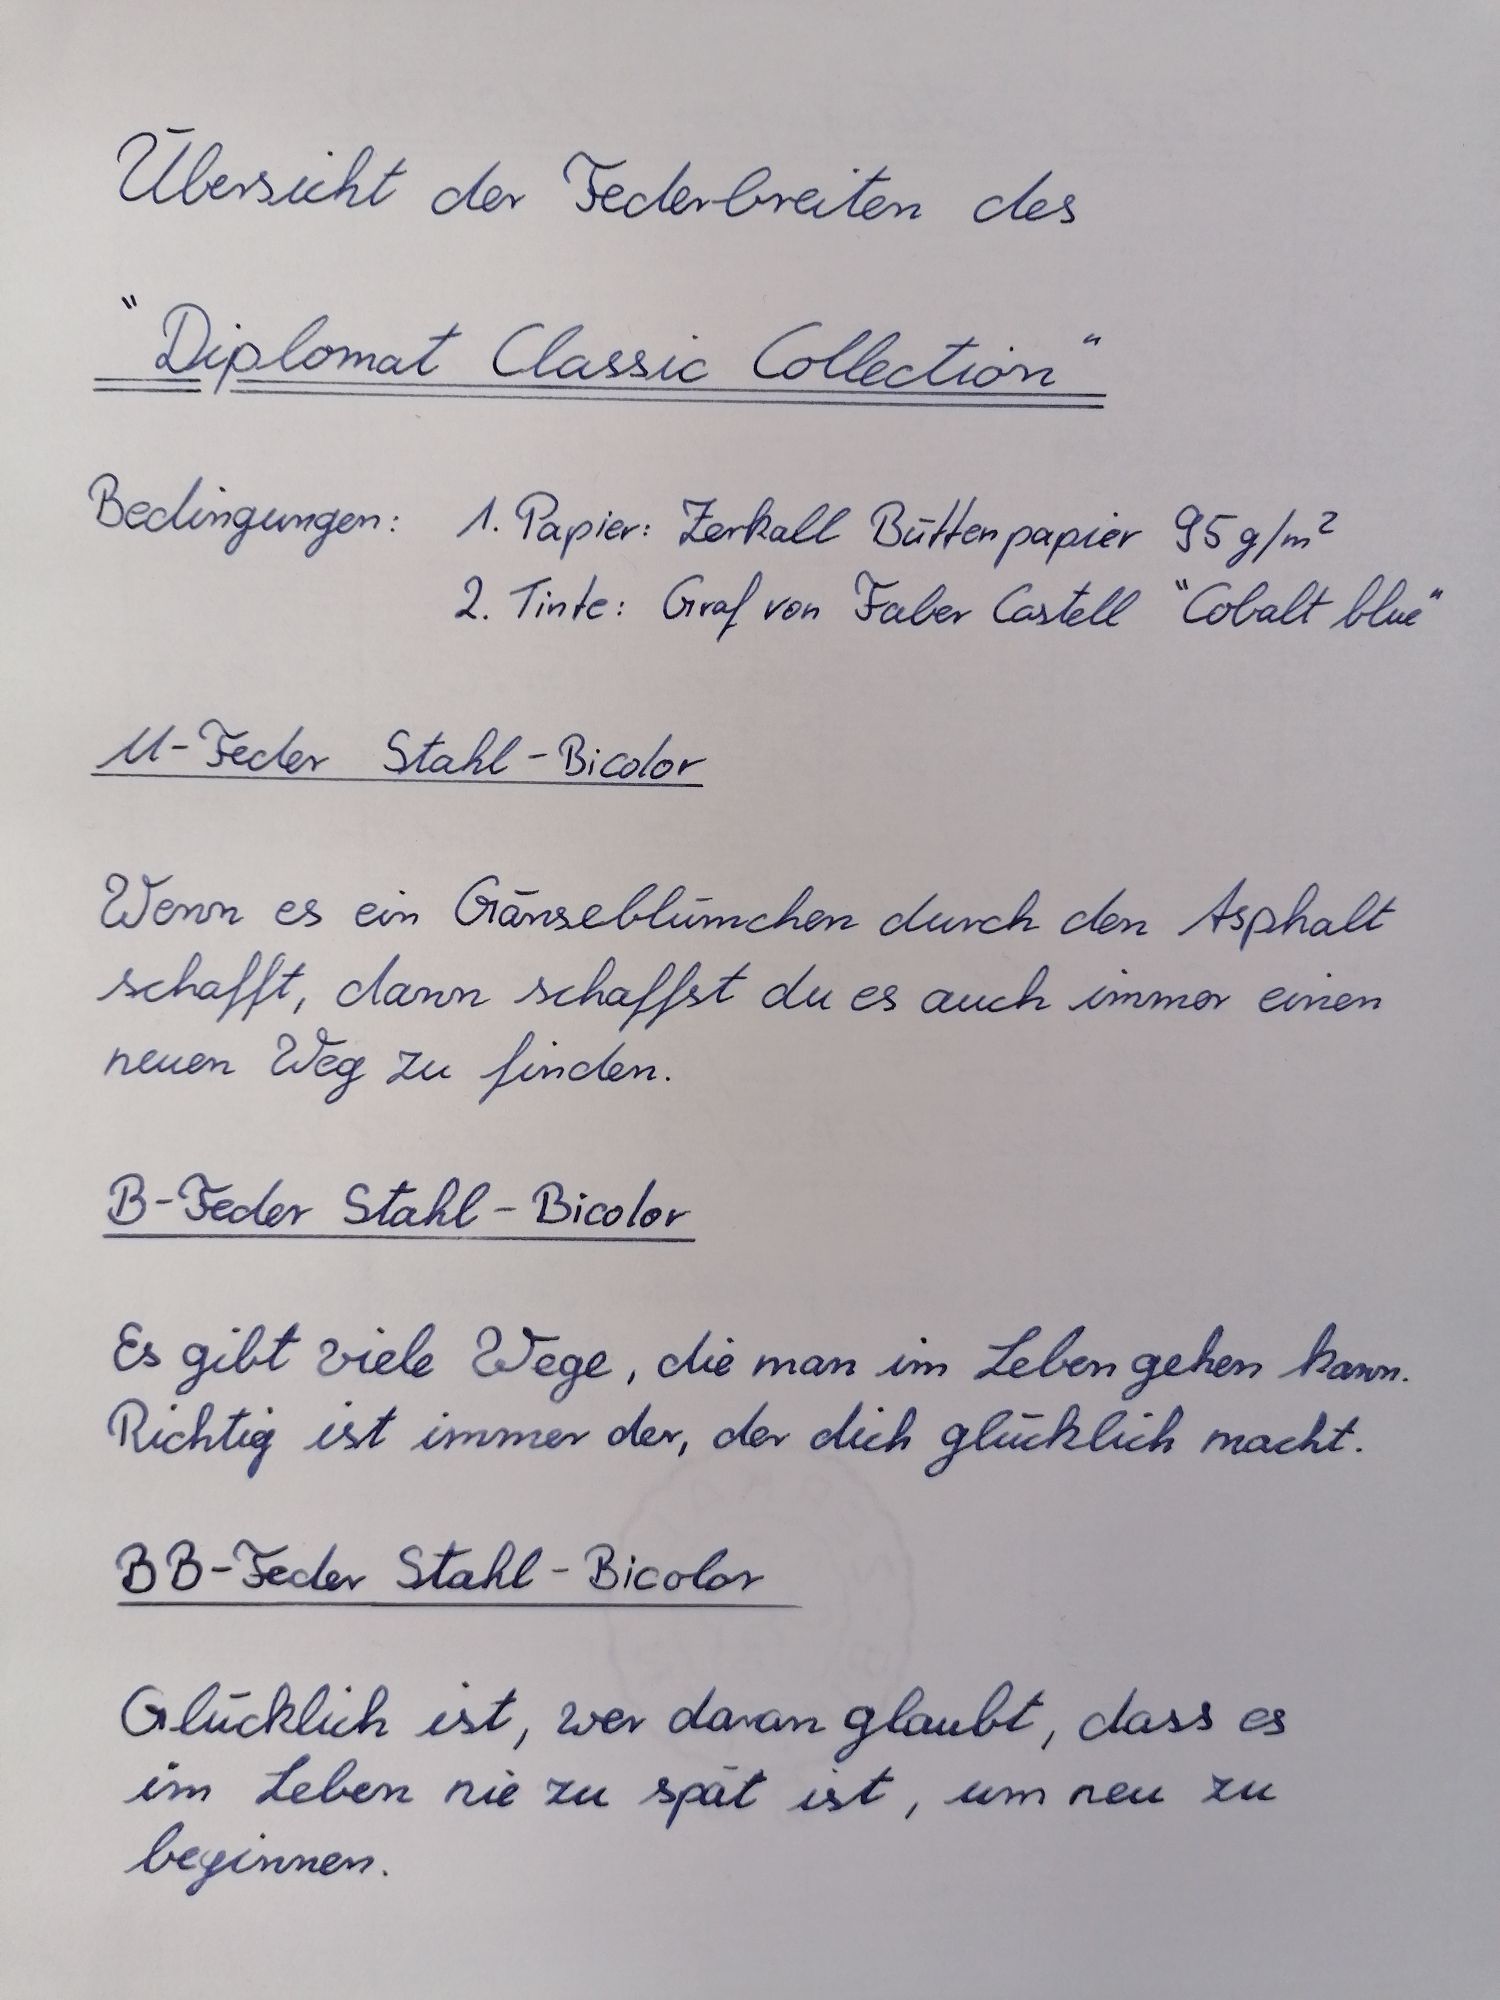 Übersicht der Federbreiten des
"Diplomat Classic Collection"
Bedingungen: 1. Papier: Zerkall Büttenpapier 95 g/m²
2. Tinte: Graf von Faber Castell "Cobalt blue"
M-Feder Stahl-Bicolor
Wenn es ein Gänseblümchen durch den Asphalt
schafft, dann schaffst du es auch immer einen
neuen Weg zu finden.
B-Feder Stahl-Bicolor
Es gibt viele Wege, die man im Leben gehen kann.
Richtig ist immer der, der dich glücklich macht.
BB-Feder Stahl-Bicolor
Glücklich ist, wer daran glaubt, dass es
im Leben nie zu spät ist, um neu zu
beginnen.